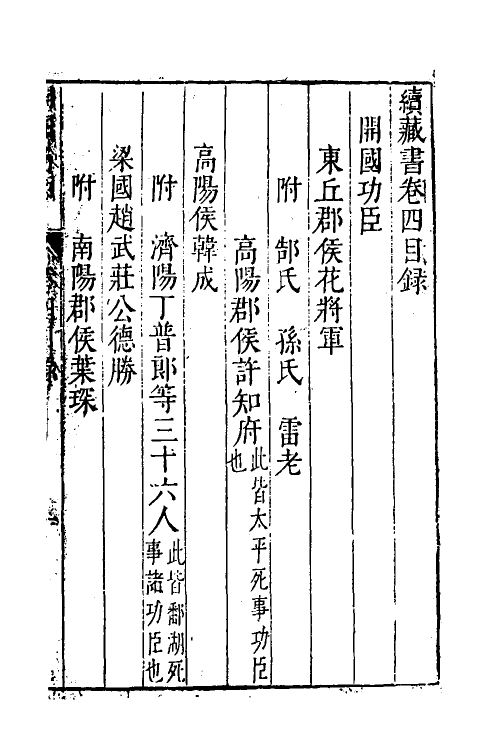 續藏書卷四目録
開國功臣
東丘郡侯花將軍
附 郜氏 孫氏 雷老
高陽郡侯許知府此皆太平死事功臣也
高陽侯韓成
附 濟陽丁普郎等三十六人此皆鄱湖死事諸功臣也
梁國趙武莊公德勝
附 南陽郡侯葉琛